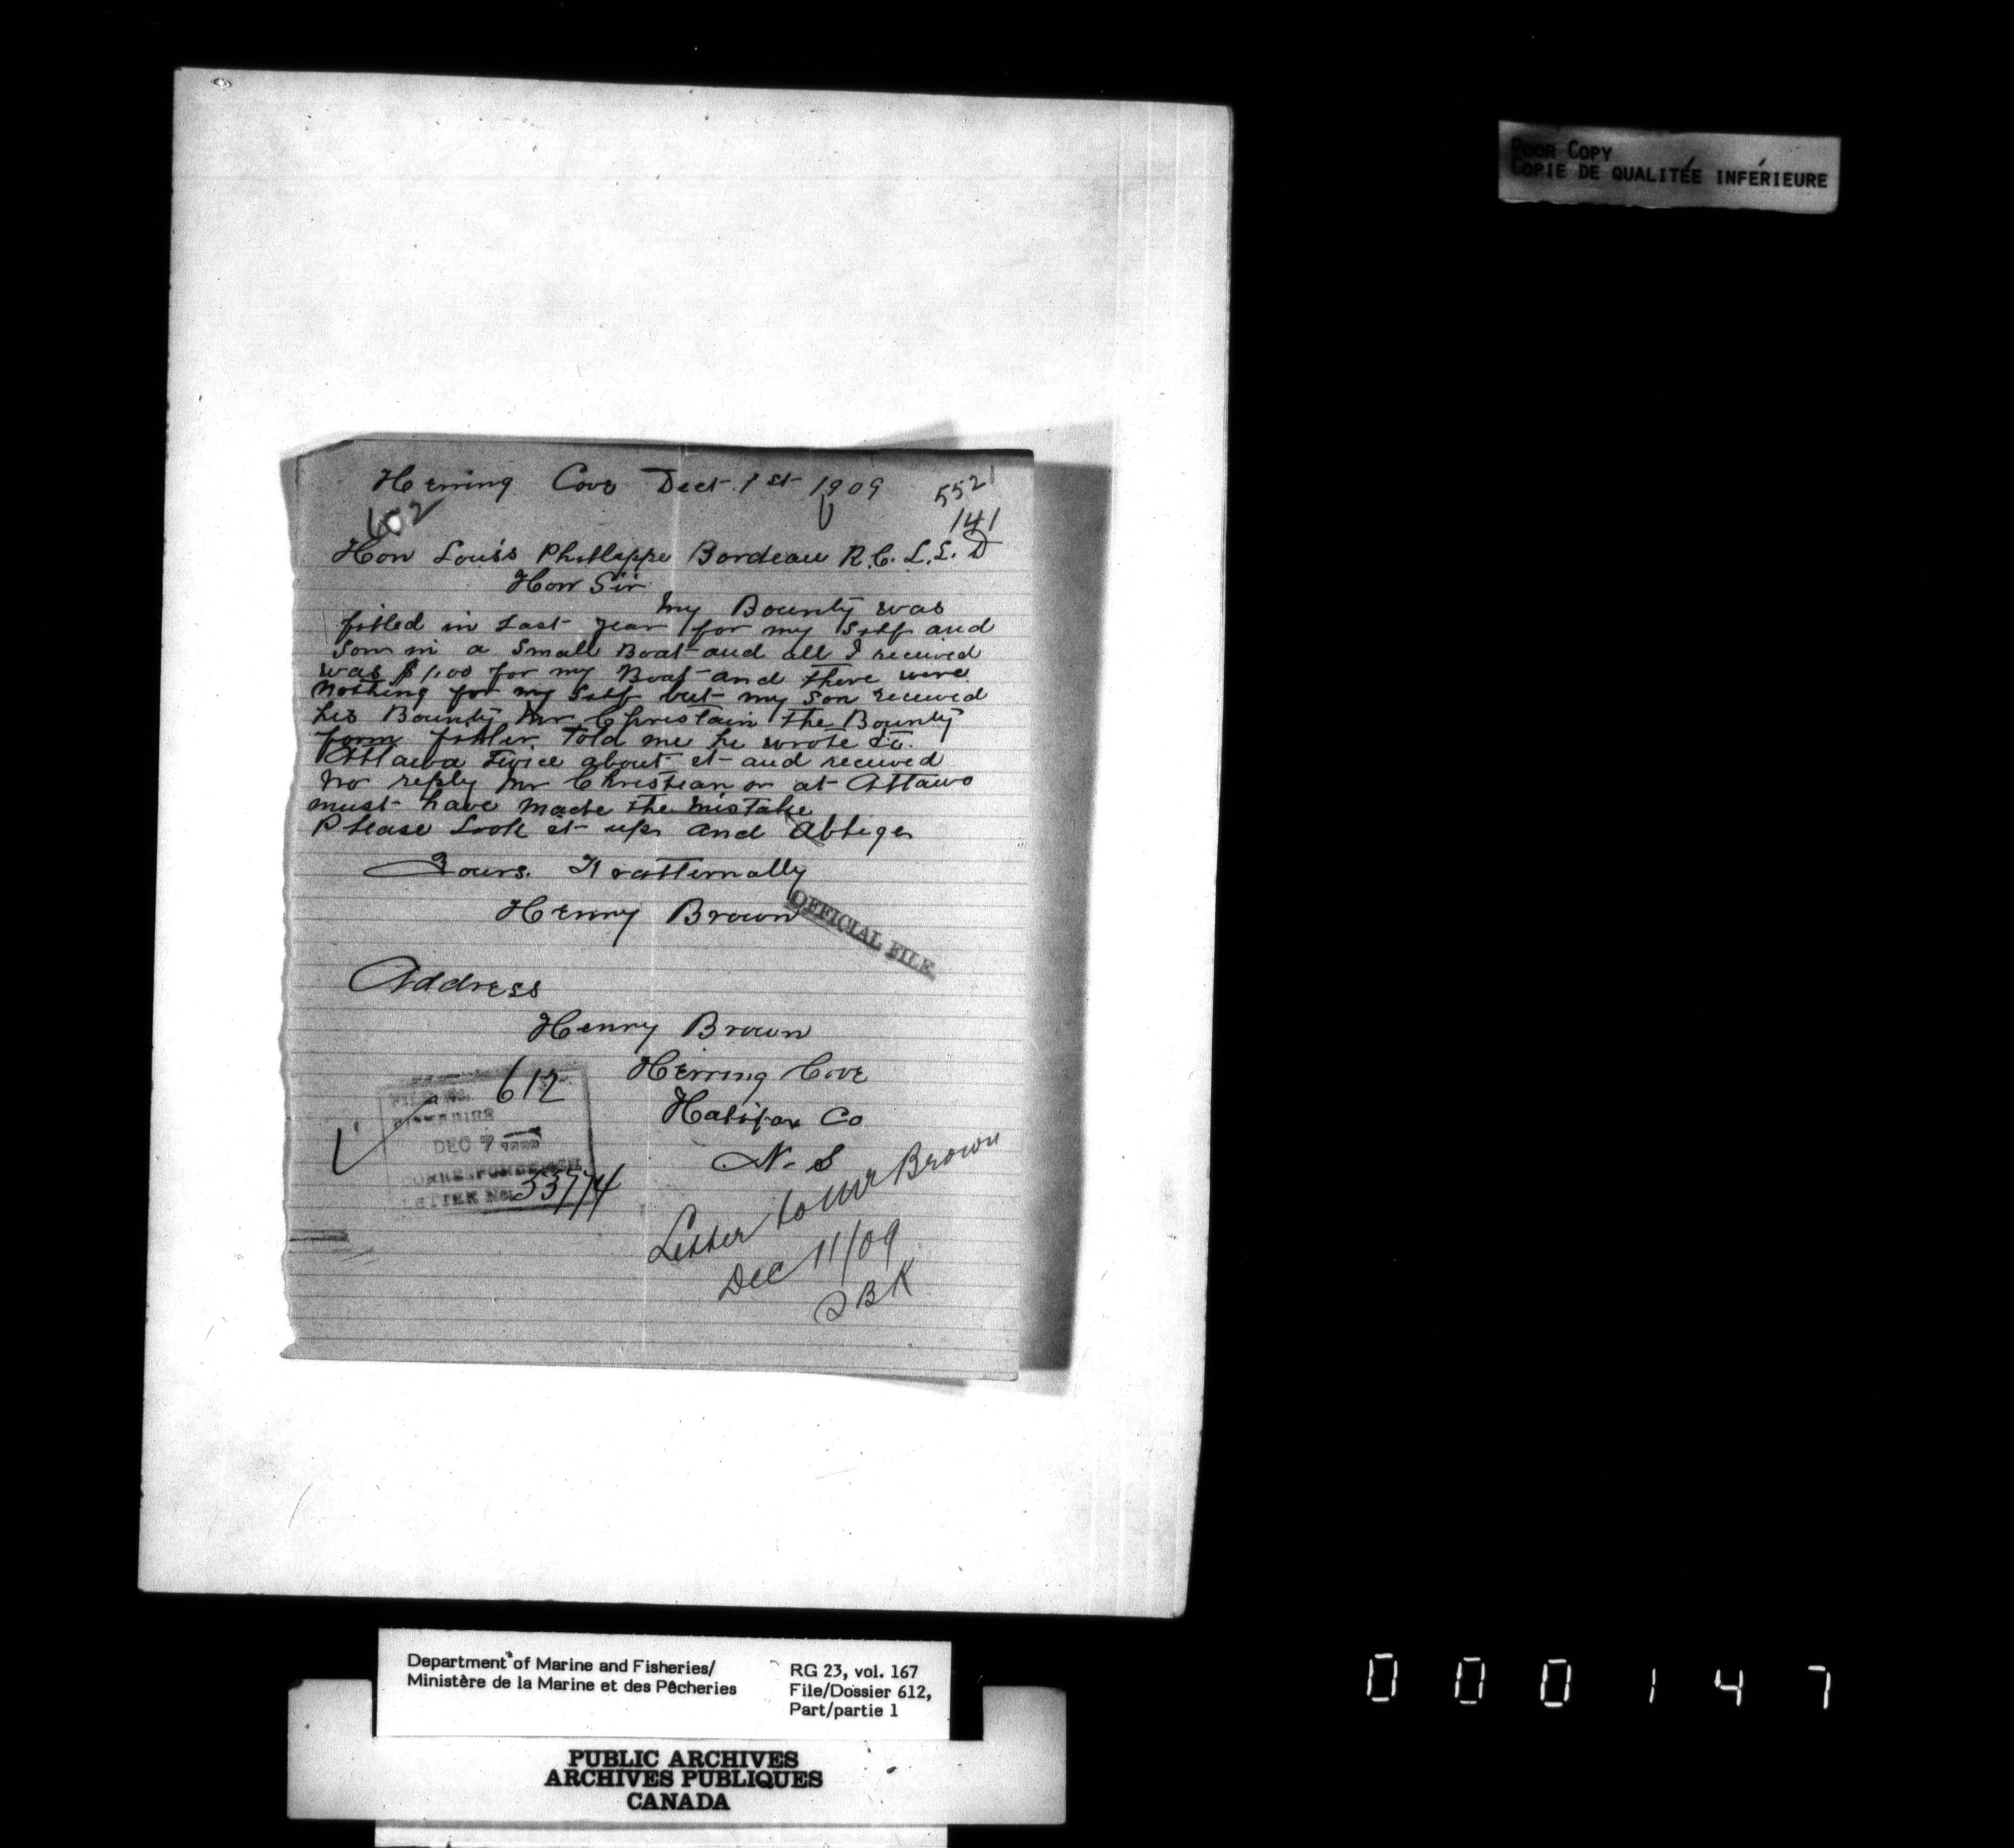 POOR COPY
COPIE DE QUALITÉE INFÉRIEURE
Herring Cove Dect. 1st 1909
5521
141
Hon Louis Phillappe Bordeau R.C. L.L. D
Hon Sir
My Bounty was
filled in Last year for my Self and
Son in a Small Boat and all I received
was $1.00 for my Boat and there were
nothing for my Self but my Son received
his Bounty Mr. Christain the Bounty
form filler told me he wrote to
Ottawa Twice about it and received
no reply Mr Christian or at Ottawa
must have made the mistake
Please Look it up and Ablige
Yours. Fratternally
Henry Brown
OFFICIAL FILE
Address
Henry Brown
Herring Cove
Halifax Co
N. S
612
FILE NO.
FISHERIES
DEC 7
CORRESPONDENCE
LETTER NO. 33774
Letter to Mr Brown
Dec 11/09
Department of Marine and Fisheries/
Ministère de la Marine et des Pêcheries
RG 23, vol. 167
File/Dossier 612,
Part/partie 1
PUBLIC ARCHIVES
ARCHIVES PUBLIQUES
CANADA
000147